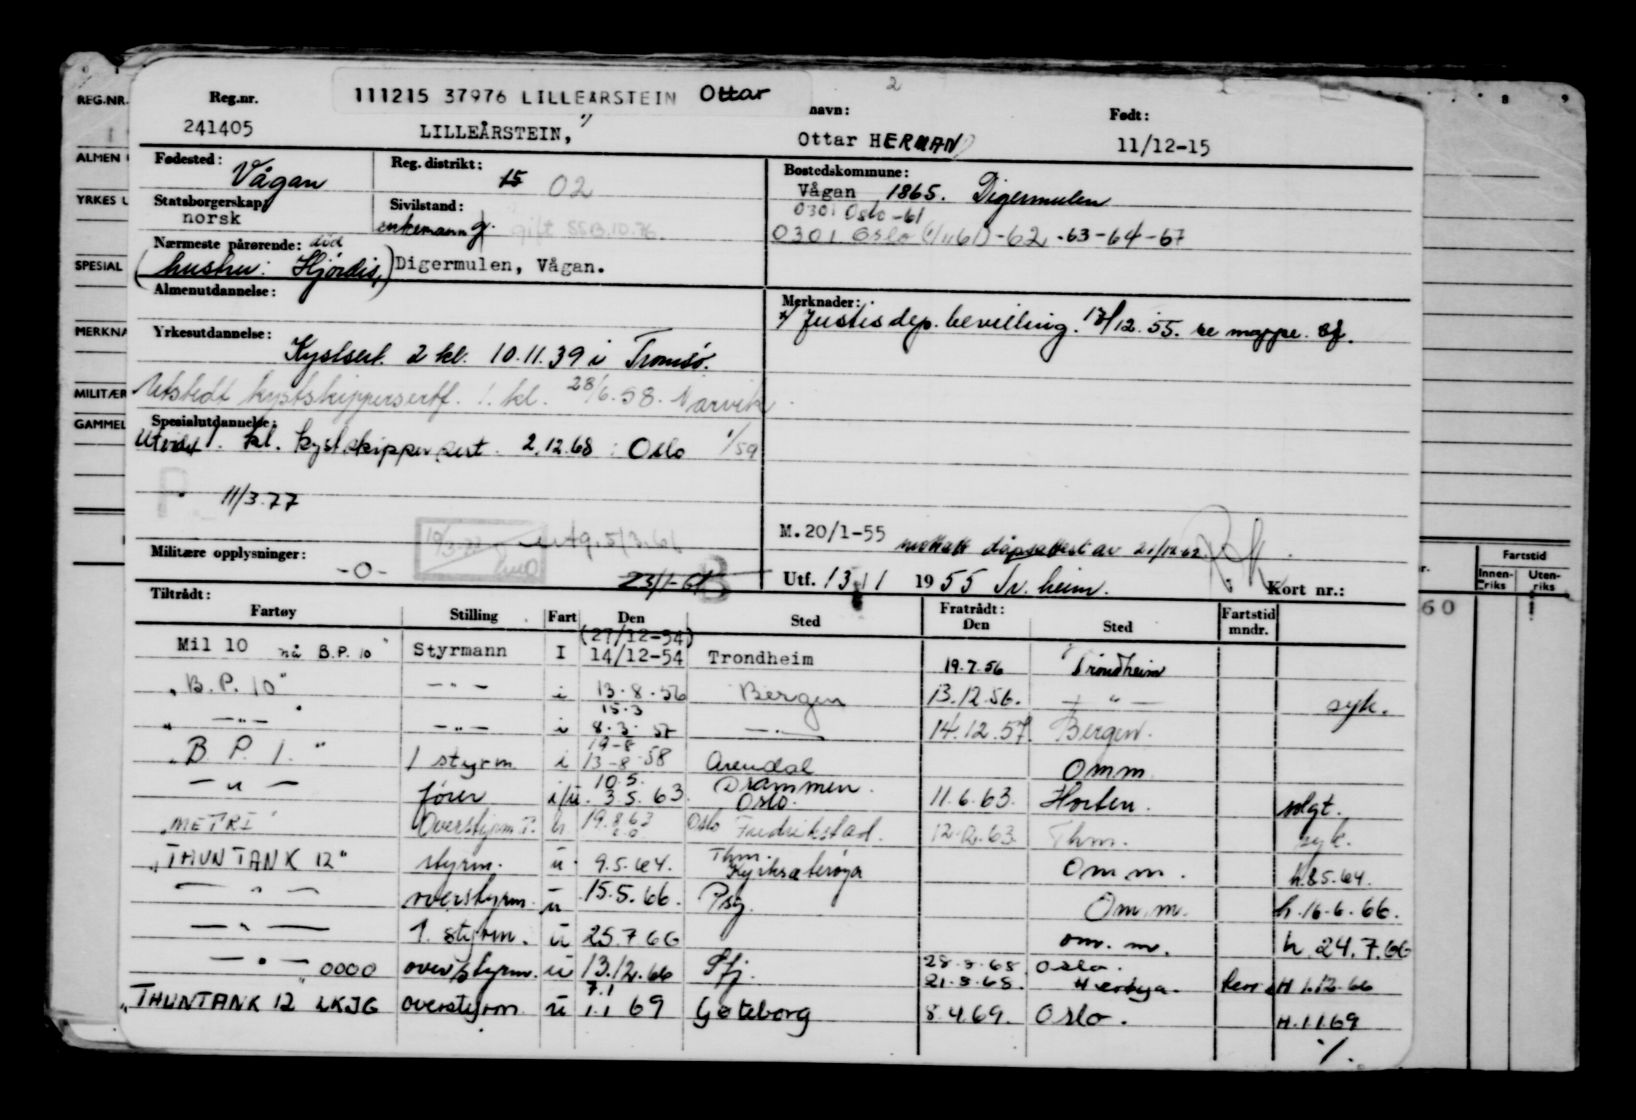 REG.NR.
ALMEN
YRKES U
SPESIAL
MERKNA
MILITÆR
GAMMEL
111215 37976 LILLEÅRSTEIN Ottar
2
8 9
Reg.nr. navn: Født:
241405 LILLEÅRSTEIN, Ottar HERMAN 11/12-15
Fødested: Vågan
Reg. distrikt: 15 02
Bostedskommune:
Vågan 1865. Digermulen
0301 Oslo -61
0301 Oslo -62-63-64-67
Statsborgerskap:
norsk
Sivilstand:
enkemann g. gift SSB.10.76.
Nærmeste pårørende: død
(hustru: Hjørdis,) Digermulen, Vågan.
Almenutdannelse:
Merknader:
Justisdep. bevilling. 12/12.55. se mappe.
Yrkesutdannelse:
Kystsert. 2 kl. 10.11.39 i Tromsø.
Utstedt kystskippersertf. 1. kl. 28/6.58. Narvik
Spesialutdannelse:
Utvidet 1. kl. kystskipper sert. 2.12.68 : Oslo 1/59
11/3.77
utg. 5/3.61
Militære opplysninger: -0-
23/1-61
B
M.20/1-55 mottatt dåpsattest av 21/12 62.
Utf. 13/1 1955 Tr.heim. Kort nr.:
Fartstid
Innen-riks Uten-riks
60
Tiltrådt: Fratrådt:
Fartøy Stilling Fart Den Sted Den Sted Fartstid mndr.
(27/12-54)
Mil 10 nå B.P. 10" Styrmann I 14/12-54 Trondheim 19.7.56 Trondheim
"B.P. 10" -"- i 13.8.56 Bergen 13.12.56. -"- syk.
15.3
"-"-" -"- i 8.3.57 -"- 14.12.57 Bergen.
19-8
"B.P. 1." 1 styrm. i 13-8-58 Arendal Omm.
10.5. Drammen.
-"- fører i/u. 3.5.63. Oslo. 11.6.63. Horten. solgt.
"METRI" Overstyrm. 19.8.63 Oslo Fredrikstad. 12.12.63. Thm. syk.
"THUNTANK 12" styrm. u. 9.5.64. Thm. Kyrksæterøya Omm. h.8.5.64.
-"- overstyrm. u 15.5.66. Psg. Omm. h.16.6.66.
-"- 1. styrm. u 25.7 66 om. m. h. 24.7.66
-"- 0000 overstyrm. u 13.12.66 Sfj. 28.3.68 Oslo.
21.3.68. H 1.12.66
7.1
"THUNTANK 12" LKJG overstyrm u 1.1 69 Gøteborg 8.4.69. Oslo. H.1.1.69
./.